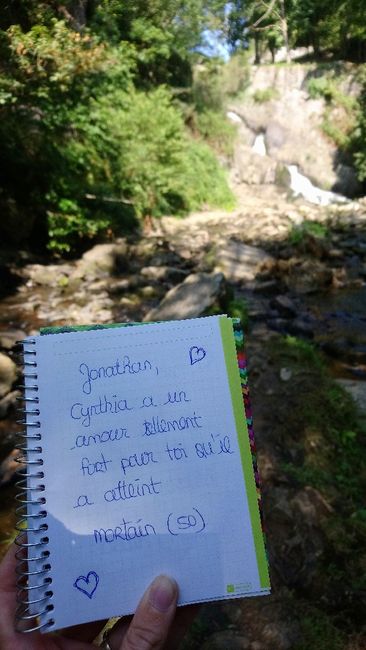 Jonathan,
Cynthia a un
amour tellement
fort pour toi qu'il
a atteint
mortain (50)